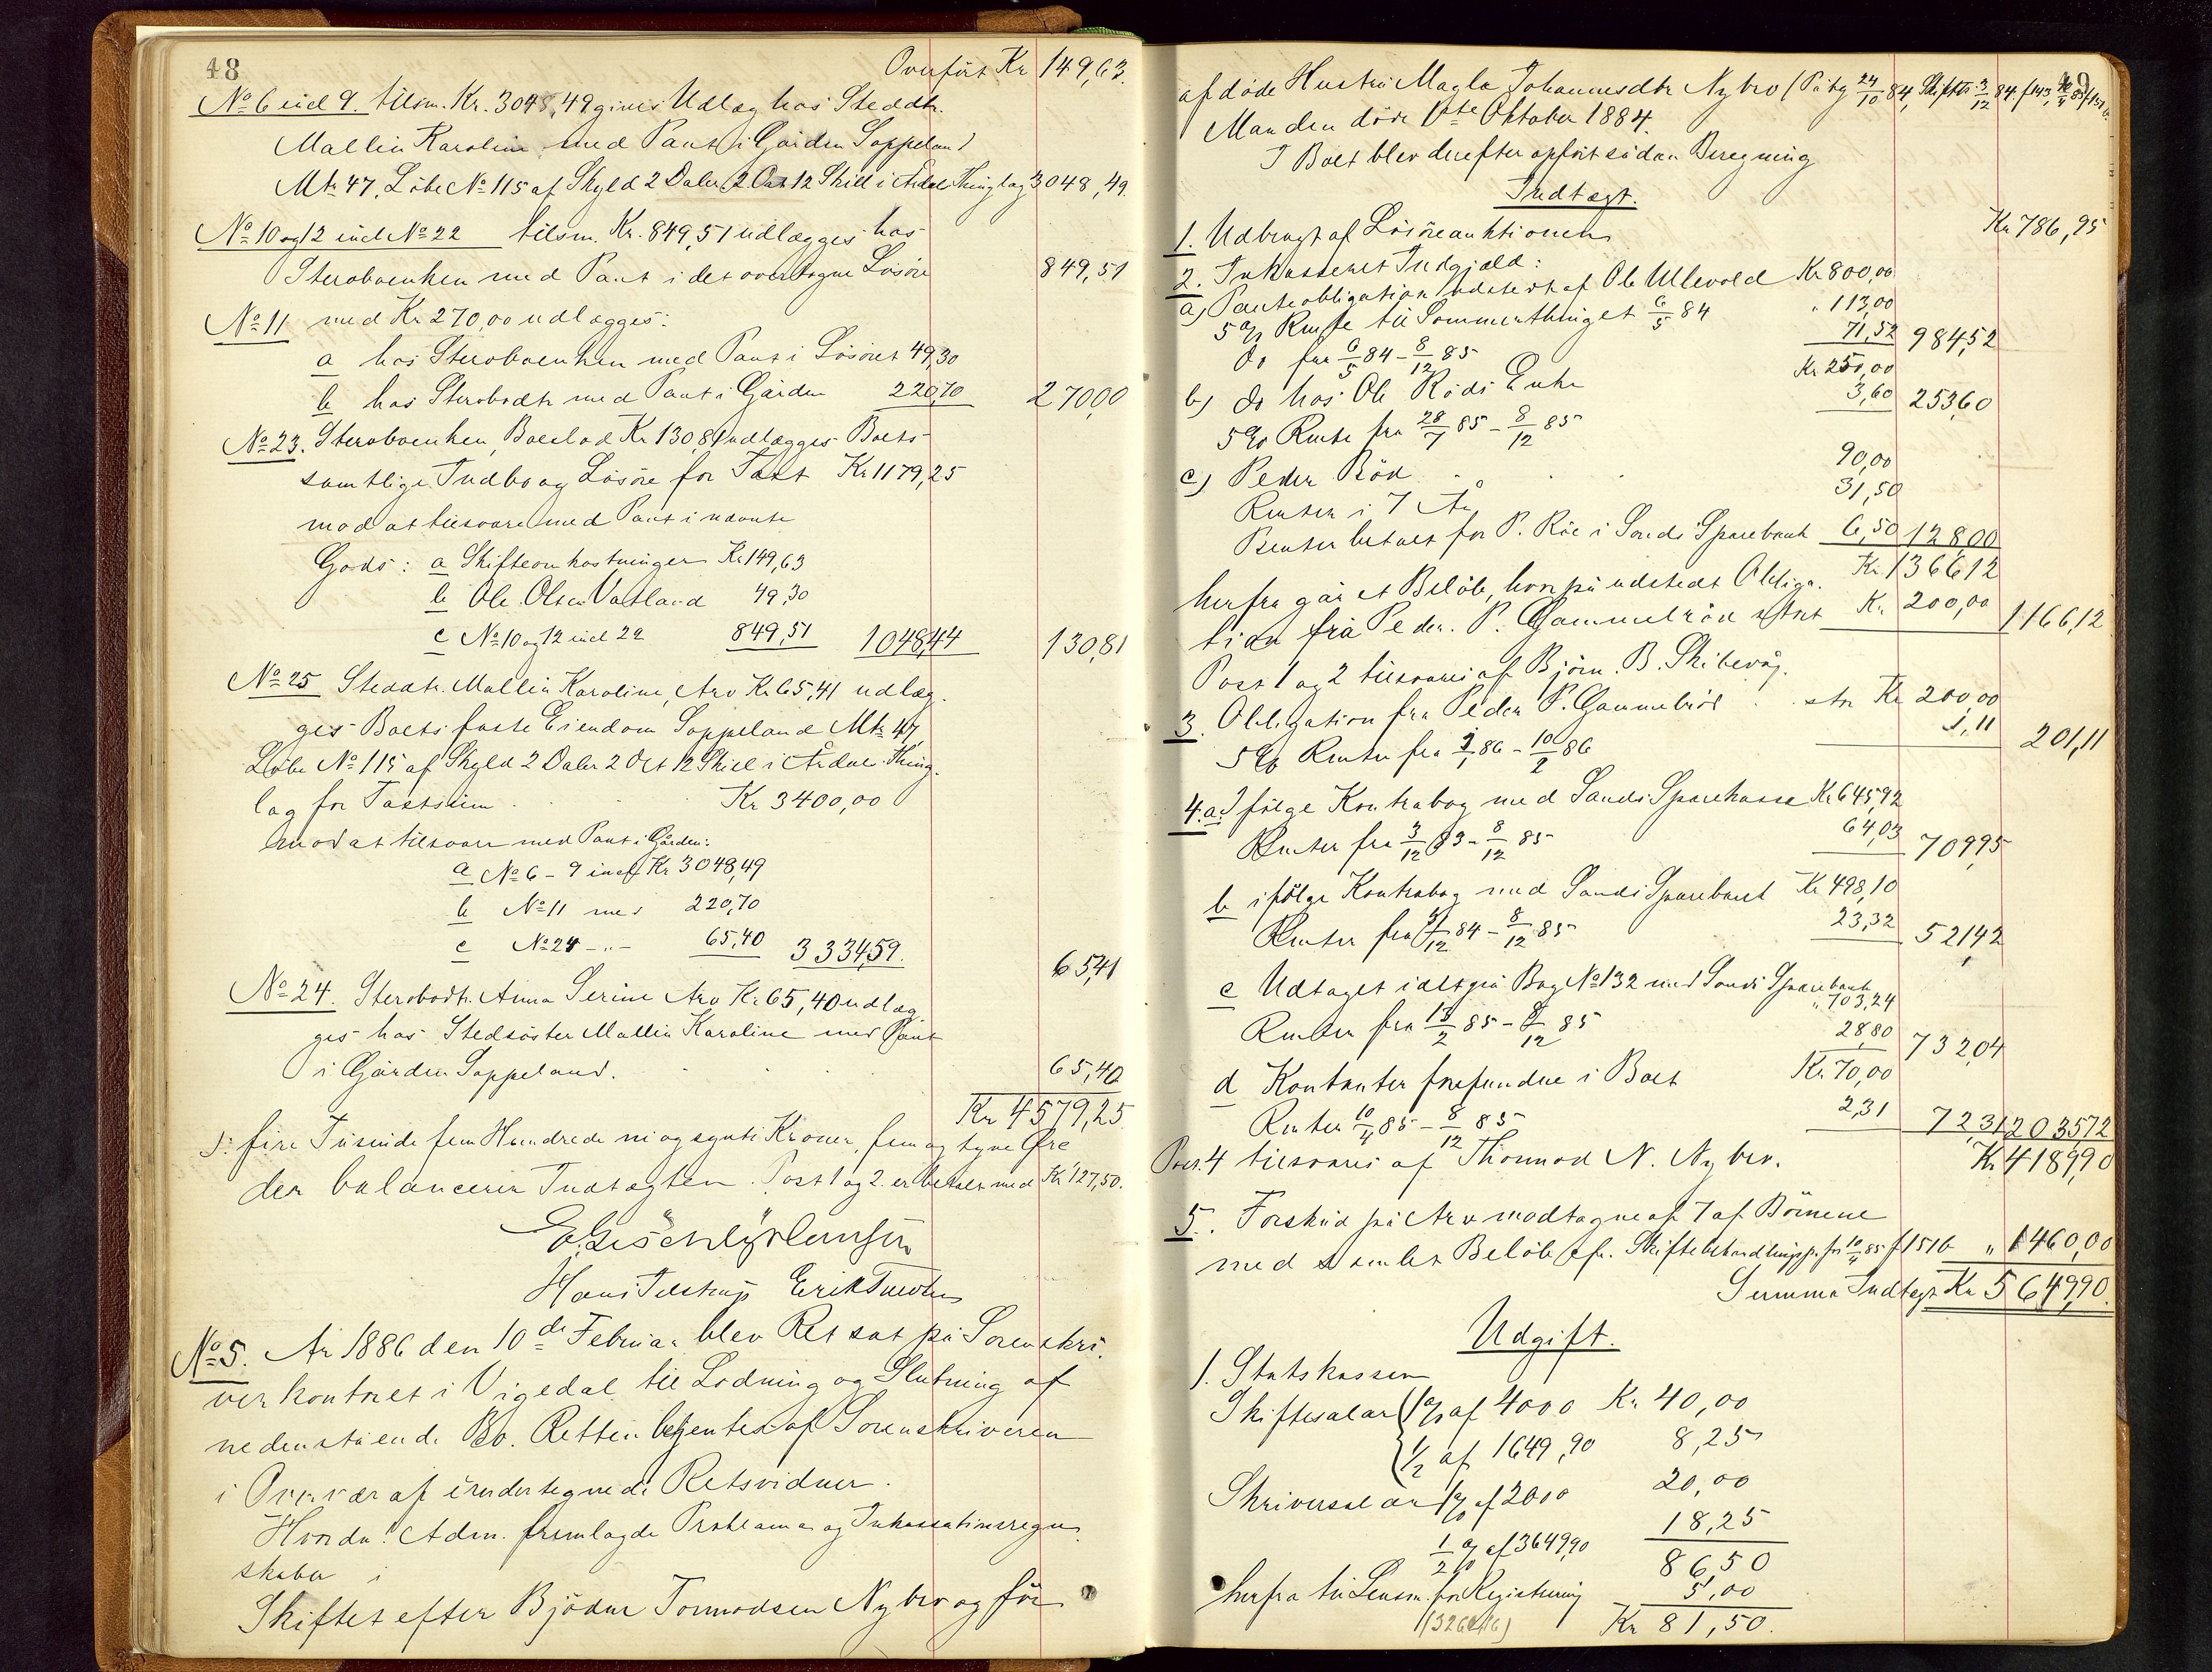 48
Overført Kr 149,63.
No 6 incl 9. tilsm. Kr. 3048,49 gives Udlæg hos Steddtr.
Mallin Karoline med Pant i Gården Soppeland
Mtr 47. Løbe No 115 af Skyld 2 Daler 2 Ort 12 Skill i Årdal Thinglag 3048,49.
No 10 og 12 incl No 22 tilsm. Kr. 849,51 udlægges hos
Stervboenken med Pant i det overtagne Løsøre 849,51
No 11 med Kr 270,00 udlægges:
a hos Stervboenken med Pant i Løsøret 49,30
b hos Stervbodtr med Pant i Gården 220,70 270,00
No 23. Stervboenken, Boeslod Kr 130,81 udlægges Boets
samtlige Indbo og Løsøre for Taxt Kr 1179,25
mod at tilsvare med Pant i nævnte
Gods: a Skifteomkostninger Kr 149,63
b Ole Olsen Vatland 49,30
c No 10 og 12 incl 22 849,51 1048,44 130,81
No 25 Steddtr. Mallin Karoline, Arv Kr 65,41 udlæg-
ges Boets faste Eiendom Soppeland Mtr 47,
Løbe No 115 af Skyld 2 Daler 2 Ort 12 Skill i Årdal Thing-
lag for Taxtsum Kr 3400,00
mod at tilsvare med Pant i Gården:
a No 6 - 9 incl Kr 3048,49
b No 11 med 220,70
c No 24 -"- 65,40 3334,59. 65,41
No 24. Stervbodtr. Anna Serine Arv Kr 65,40 udlæg-
ges hos Stedsøster Mallin Karoline med Pant
i Gården Soppeland. 65,40
Kr 4579,25
ɔ: fire Tusinde fem Hundrede ni og sytti Kroner, fem og tyve Øre
der balancerer Indtægten. Post 1 og 2 er betalt med Kr 127,50.
Hans Tilstrup Erik
No 5. År 1886 den 10de Februar blev Ret sat på Sorenskri-
verkontoret i Vigedal til Lodning og Slutning af
nedenstående Bo. Retten betjentes af Sorenskriveren
i Overvær af undertegnede Retsvidner.
Hvorda: Adm. fremlagde Proklama og Inkassationsregn-
skaber i
Skiftet efter Bjødne Tormodsen Nybro og før
49
afdøde Hustru Magla Johannesdtr Nybro (Påtg 24/10 84, Skiftet 3/12 84 f 143, 10/4 85 f 151 b
Manden døde 1ste Oktober 1884.
I Boet blev derefter opført sådan Beregning
Indtægt.
1. Udbragt af Løsøreauktionen Kr 786,95
2. Inkasseret Indgjæld:
a) Panteobligation udstedt af Ole Ullevold Kr 800,00
5 % Rente til Sommerthinget 6/5 84 " 113,00
do fra 6/5 84 - 8/12 85 71,52 984,52
b) do hos Ole Røds Enke Kr 250,00
5 % Rente fra 28/7 85 - 8/12 85 3,60 253,60
c) Peder Röd 90,00
Renter i 7 År 31,50
Renter betalt for P. Röe i Sands Sparebank 6,50 128,00
Kr. 1366,12
herfra går et Beløb, hvorpå udstedt Obliga-
tion fra Peder P. Gammelröd stort Kr 200,00 1166,12
Post 1 og 2 tilsvares af Bjørn B. Skibevåg.
3. Obligation fra Peder P. Gammelröd str Kr 200,00
5 % Renter fra 1/1 86 - 10/2 86 1,11 201,11
4. a. I følge Kontrabog med Sands Sparekasse Kr 645,92
Renter fra 3/12 83 - 8/12 85 64,03 709,95
b ifølge Kontrabog med Sands Sparebank Kr 498,10
Renter fra 31/12 84 - 8/12 85 23,32 521,42
c Udtaget idet på Bog No 132 med Sands Sparebank
" 703,24
Renter fra 13/2 85 - 8/12 85 28,80 732,04
d Kontanter forefundne i Boet Kr 70,00
Renter 10/4 85 - 8/12 85 2,31 72,31 2035,72
Post 4 tilsvares af Thormod N. Nybro. Kr 4189,90
5. Forskud på Arv modtagne af 7 af Børnene
med samlet Beløb cfr. Skiftebehandlingsp. for 10/4 85 f 151 b " 1460,00
Summa Indtægt Kr 5649,90.
Udgift.
1. Statskassen
Skiftesalær (1 % af 4000 Kr. 40,00
1/2 af 1649,90 8,25
Skriversalær 1 % af 2000 20,00
1/2 % af 3649,90 18,25
86,50
herfra til Lensm. for Registrering 5,00
Kr 81,50.